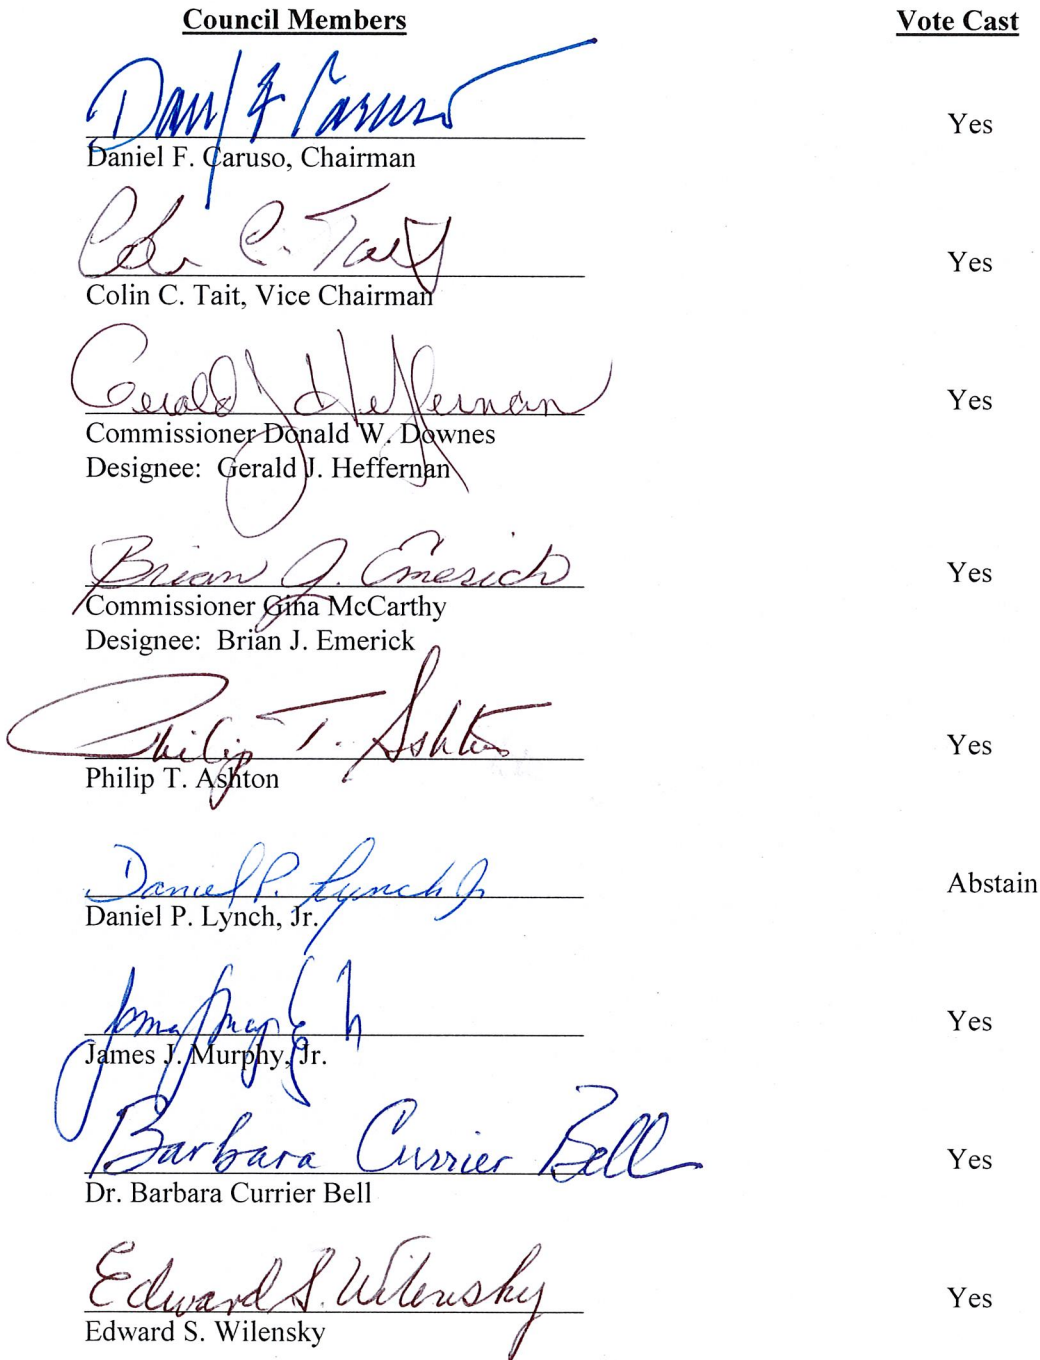 Council Members Vote Cast
Daniel F. Caruso Yes
Daniel F. Caruso, Chairman
Colin C. Tait Yes
Colin C. Tait, Vice Chairman
Gerald J Heffernan Yes
Commissioner Donald W. Downes
Designee: Gerald J. Heffernan
Brian J. Emerick Yes
Commissioner Gina McCarthy
Designee: Brian J. Emerick
Philip T. Ashton Yes
Philip T. Ashton
Daniel P. Lynch Jr Abstain
Daniel P. Lynch, Jr.
Yes
James J. Murphy, Jr.
Barbara Currier Bell Yes
Dr. Barbara Currier Bell
Edward S. Wilensky Yes
Edward S. Wilensky